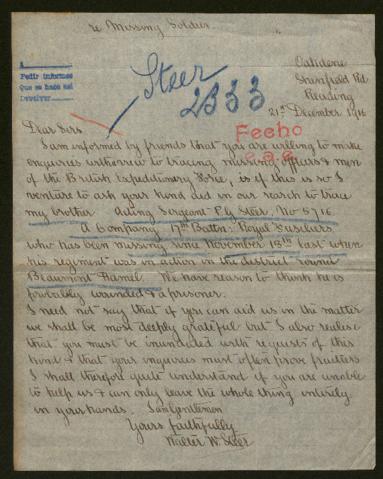 re Missing Soldier
Oakdene
Shinfield Rd
Reading
21st December 1916
Pedir informes
Que se hace así
Devolver
Steer
2333
Fecho
Dear Sirs
I am informed by friends that you are willing to make
enquiries with a view to tracing missing officers & men
of the British Expeditionary Force, & if this is so I
venture to ask your kind aid in our search to trace
my brother Acting Sergeant P.G. Steer, No 5716
A Company 17th Battn: Royal Fusiliers
who has been missing since November 13th last when
his regiment was in action in the district round
Beaumont Hamel. We have reason to think he is
probably wounded & a prisoner.
I need not say that if you can aid us in the matter
we shall be most deeply grateful but I also realise
that you must be inundated with requests of this
kind & that your enquiries must often prove fruitless
I shall therefore quite understand if you are unable
to help us & can only leave the whole thing entirely
in your hands. I am Gentlemen
Yours faithfully
Walter W. Steer